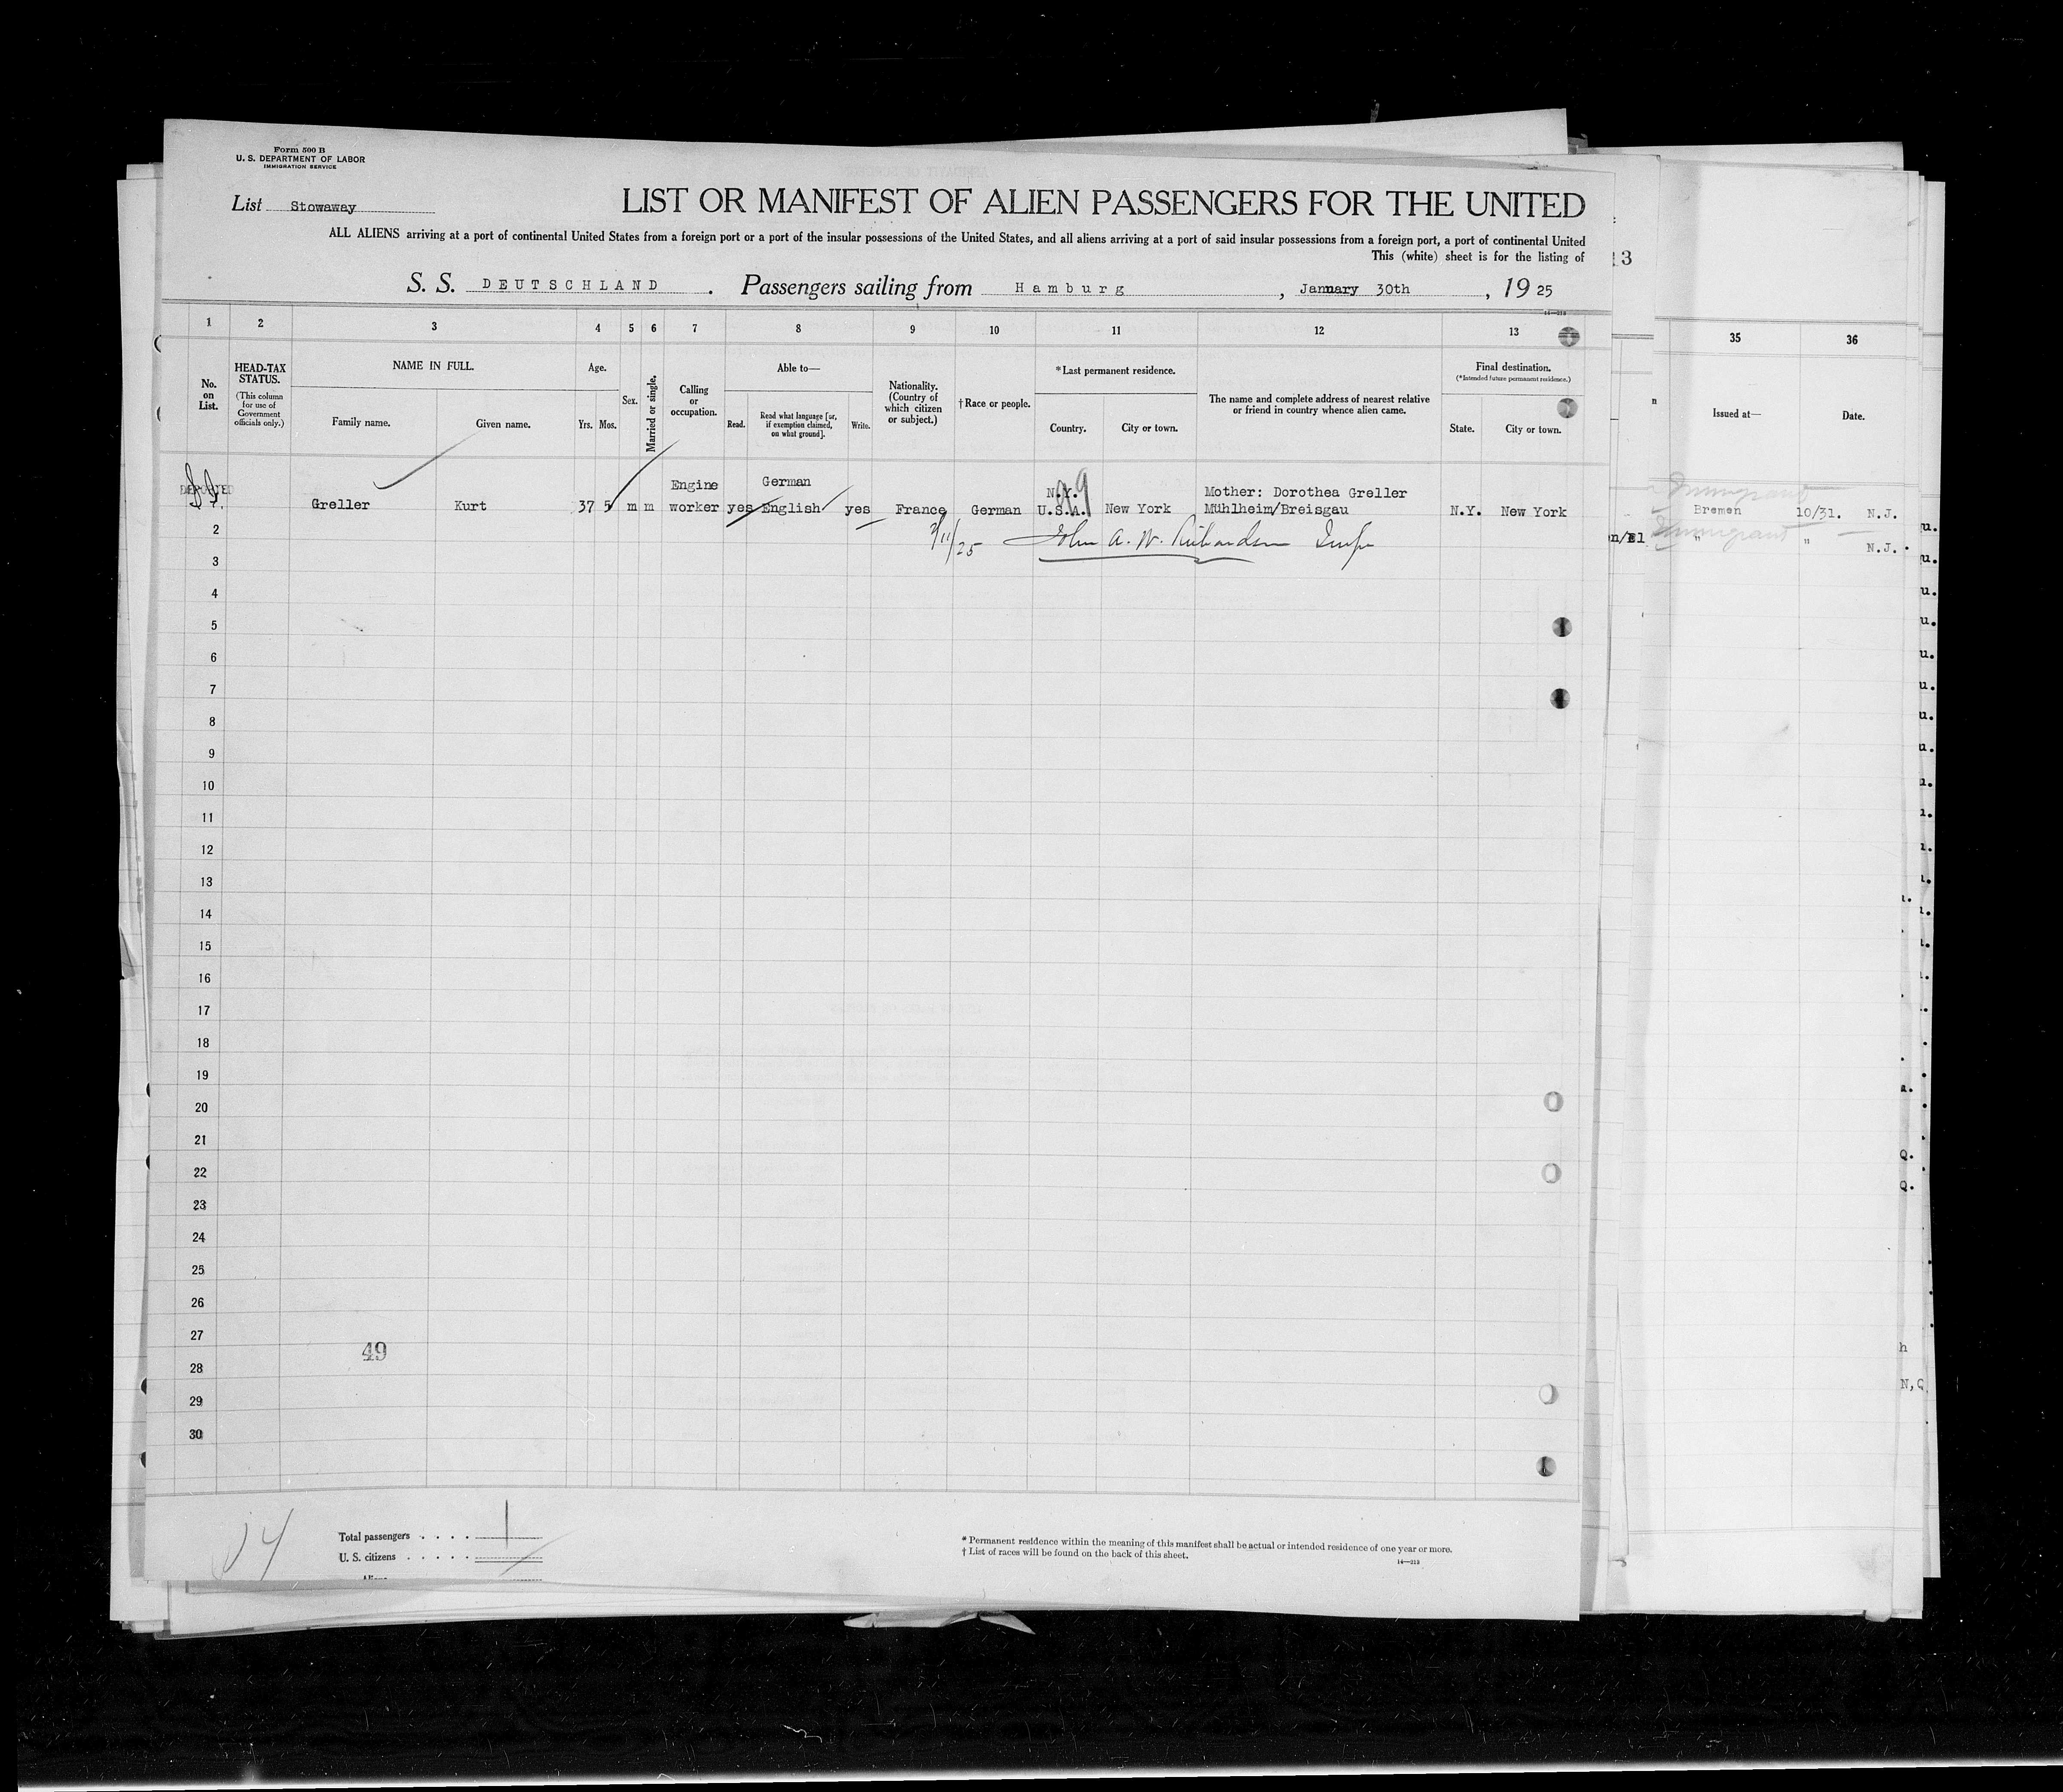 Form 500 B
U. S. DEPARTMENT OF LABOR
IMMIGRATION SERVICE
List Stowaway
LIST OR MANIFEST OF ALIEN PASSENGERS FOR THE UNITED
ALL ALIENS arriving at a port of continental United States from a foreign port or a port of the insular possessions of the United States, and all aliens arriving at a port of said insular possessions from a foreign port, a port of continental United
This (white) sheet is for the listing of
13
S. S. DEUTSCHLAND. Passengers sailing from Hamburg, January 30th, 1925
1 2 3 4 5 6 7 8 9 10 11 12 13 35 36
No. on List.
HEAD-TAX STATUS.
(This column for use of Government officials only.)
NAME IN FULL.
Family name. Given name.
Age.
Yrs. Mos.
Sex.
Married or single.
Calling or occupation.
Able to—
Read. Read what language [or, if exemption claimed, on what ground]. Write.
Nationality. (Country of which citizen or subject.)
†Race or people.
*Last permanent residence.
Country. City or town.
The name and complete address of nearest relative or friend in country whence alien came.
Final destination.
(*Intended future permanent residence.)
State. City or town.
Issued at— Date.
DEPORTED
Engine German N.Y. Mother: Dorothea Greller
Greller Kurt 37 5 m m worker yes English yes France German U.S.A. New York Mühlheim/Breisgau N.Y. New York
Immigrant
Bremen 10/31. N.J.
Immigrant
n/El " " N.J.
2/11/25 John A. W. Richardson Insp
2
3
4
5
6
7
8
9
10
11
12
13
14
15
16
17
18
19
20
21
22
23
24
25
26
27
49
28
29
30
Total passengers . . . . 1
U. S. citizens . . . . .
* Permanent residence within the meaning of this manifest shall be actual or intended residence of one year or more.
† List of races will be found on the back of this sheet.
14—213